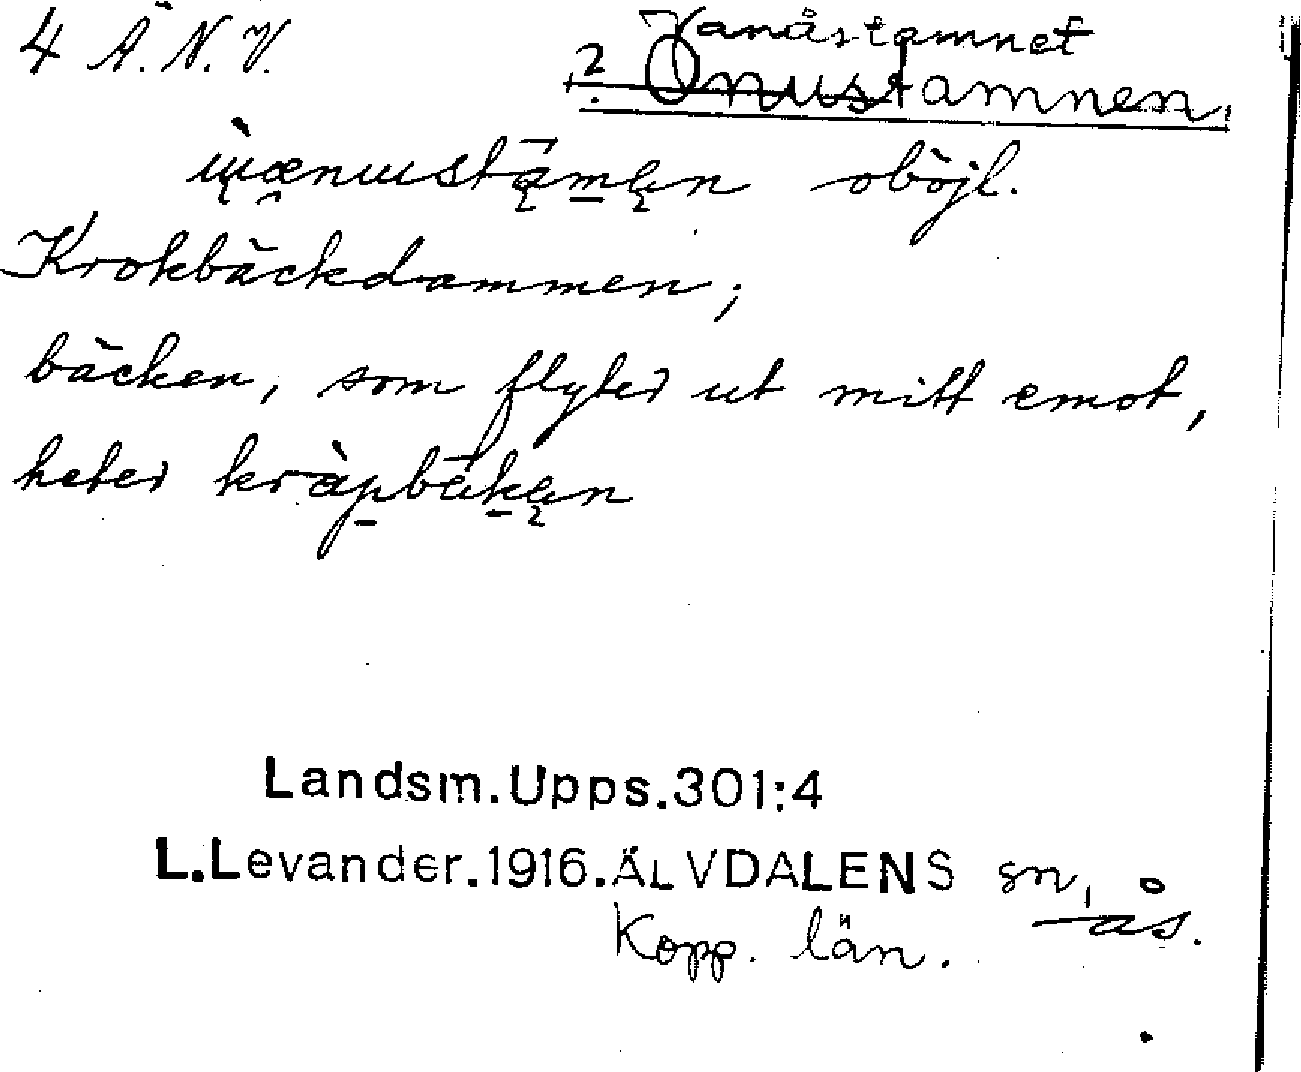 4 Ä. N. V.
Vanåstamnet
2. Onustamnen.
oböjl.
Krokbäckdammen;
bäcken, som flyter ut mitt emot,
heter kràpbäken
Landsm.Upps.301:4
L.Levander.1916.ÄLVDALENS sn, ås.
Kopp. län.